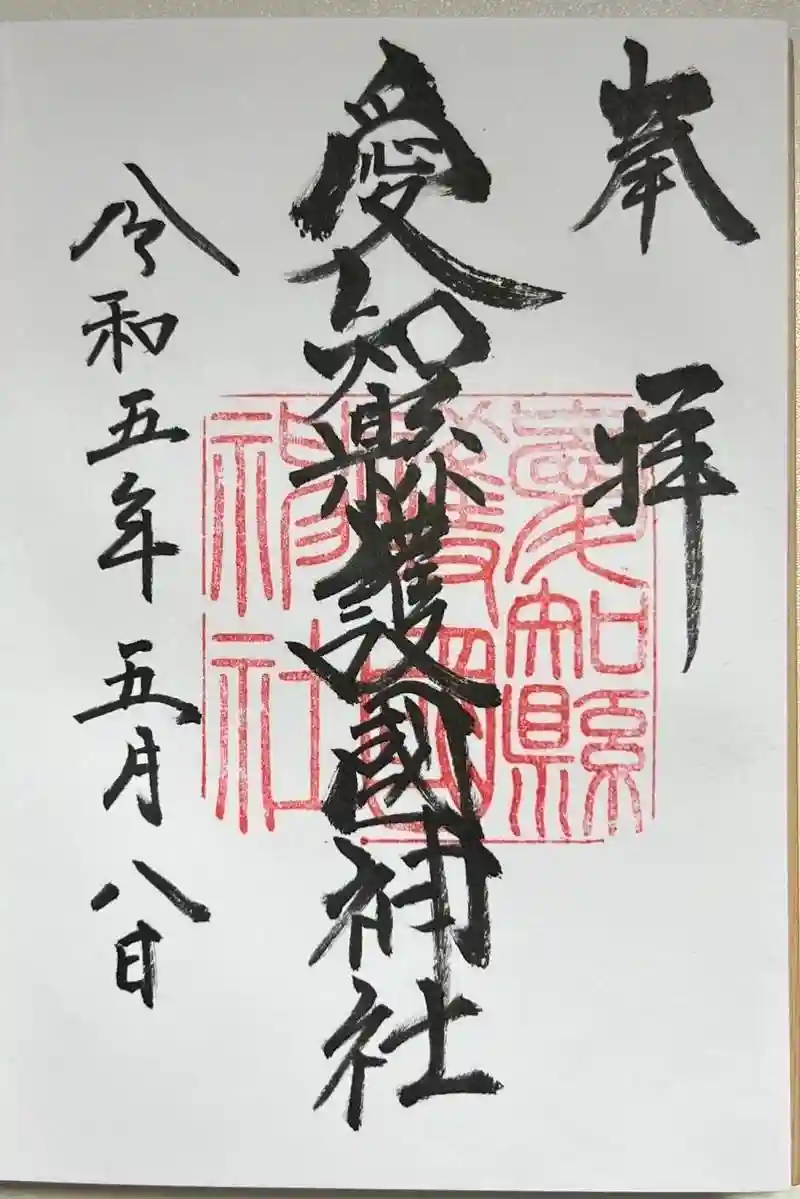 奉拝
愛知縣護國神社
令和五年五月八日
愛知縣
護國
神社